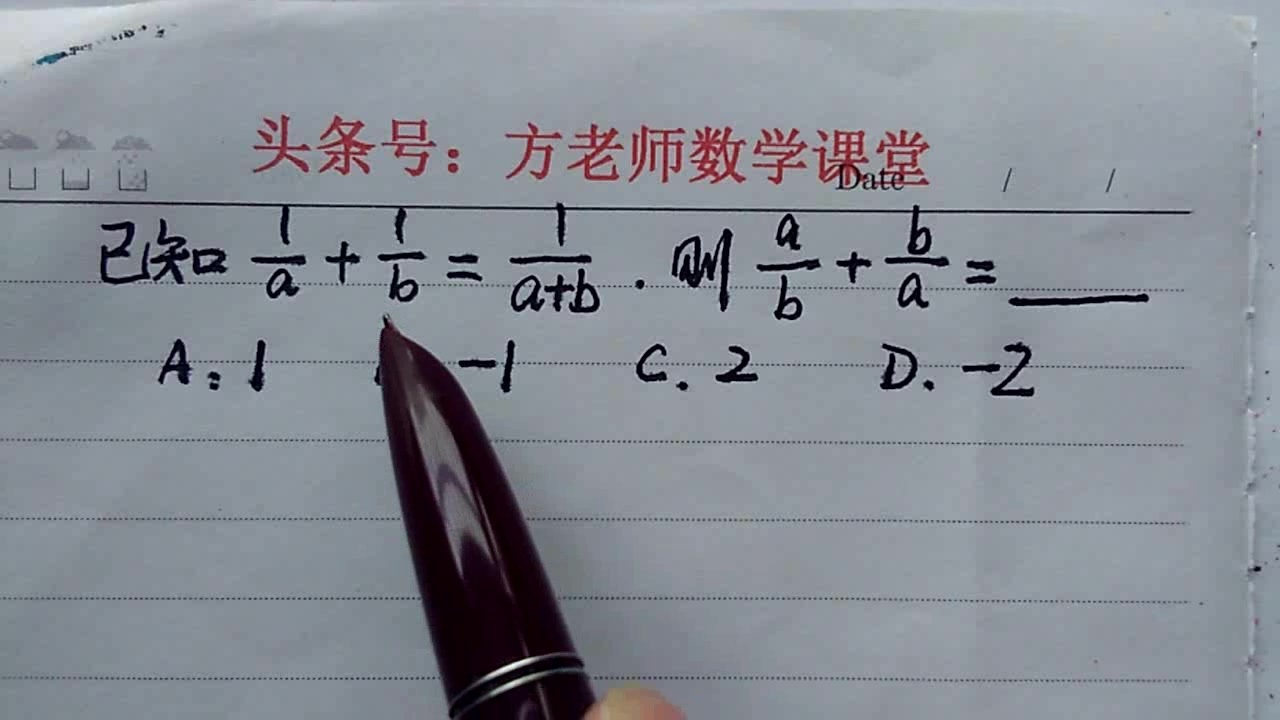 头条号：方老师数学课堂
Date / /
已知 1/a + 1/b = 1/(a+b) . 则 a/b + b/a = ____
A. 1 -1 C. 2 D. -2